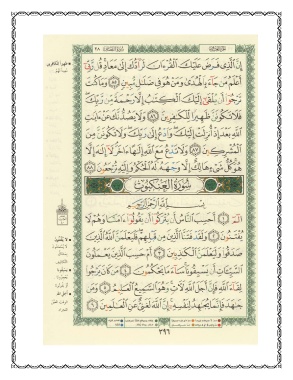 إِنَّ الَّذِي فَرَضَ عَلَيْكَ الْقُرْءَانَ لَرَآدُّكَ إِلَىٰ مَعَادٍ قُل رَّبِّي
أَعْلَمُ مَن جَآءَ بِالْهُدَىٰ وَمَنْ هُوَ فِي ضَلَٰلٍ مُّبِينٍ ٨٥ وَمَا كُنتَ
تَرْجُوٓا۟ أَن يُلْقَىٰٓ إِلَيْكَ الْكِتَٰبُ إِلَّا رَحْمَةً مِّن رَّبِّكَ
فَلَا تَكُونَنَّ ظَهِيرًا لِّلْكَٰفِرِينَ ٨٦ وَلَا يَصُدُّنَّكَ عَنْ ءَايَٰتِ
اللَّهِ بَعْدَ إِذْ أُنزِلَتْ إِلَيْكَ وَادْعُ إِلَىٰ رَبِّكَ وَلَا تَكُونَنَّ مِنَ
الْمُشْرِكِينَ ٨٧ وَلَا تَدْعُ مَعَ اللَّهِ إِلَٰهًا ءَاخَرَ لَآ إِلَٰهَ إِلَّا
هُوَ كُلُّ شَيْءٍ هَالِكٌ إِلَّا وَجْهَهُ لَهُ الْحُكْمُ وَإِلَيْهِ تُرْجَعُونَ ٨٨
سُورَةُ الْعَنكَبُوتِ
بِسْمِ اللَّهِ الرَّحْمَٰنِ الرَّحِيمِ
الٓمٓ ١ أَحَسِبَ النَّاسُ أَن يُتْرَكُوٓا۟ أَن يَقُولُوٓا۟ ءَامَنَّا وَهُمْ لَا
يُفْتَنُونَ ٢ وَلَقَدْ فَتَنَّا الَّذِينَ مِن قَبْلِهِمْ فَلَيَعْلَمَنَّ اللَّهُ الَّذِينَ
صَدَقُوا۟ وَلَيَعْلَمَنَّ الْكَٰذِبِينَ ٣ أَمْ حَسِبَ الَّذِينَ يَعْمَلُونَ
السَّيِّـَٔاتِ أَن يَسْبِقُونَا سَآءَ مَا يَحْكُمُونَ ٤ مَن كَانَ يَرْجُوا۟
لِقَآءَ اللَّهِ فَإِنَّ أَجَلَ اللَّهِ لَءَاتٍ وَهُوَ السَّمِيعُ الْعَلِيمُ ٥ وَمَن
جَٰهَدَ فَإِنَّمَا يُجَٰهِدُ لِنَفْسِهِ إِنَّ اللَّهَ لَغَنِيٌّ عَنِ الْعَٰلَمِينَ ٦
٣٩٦